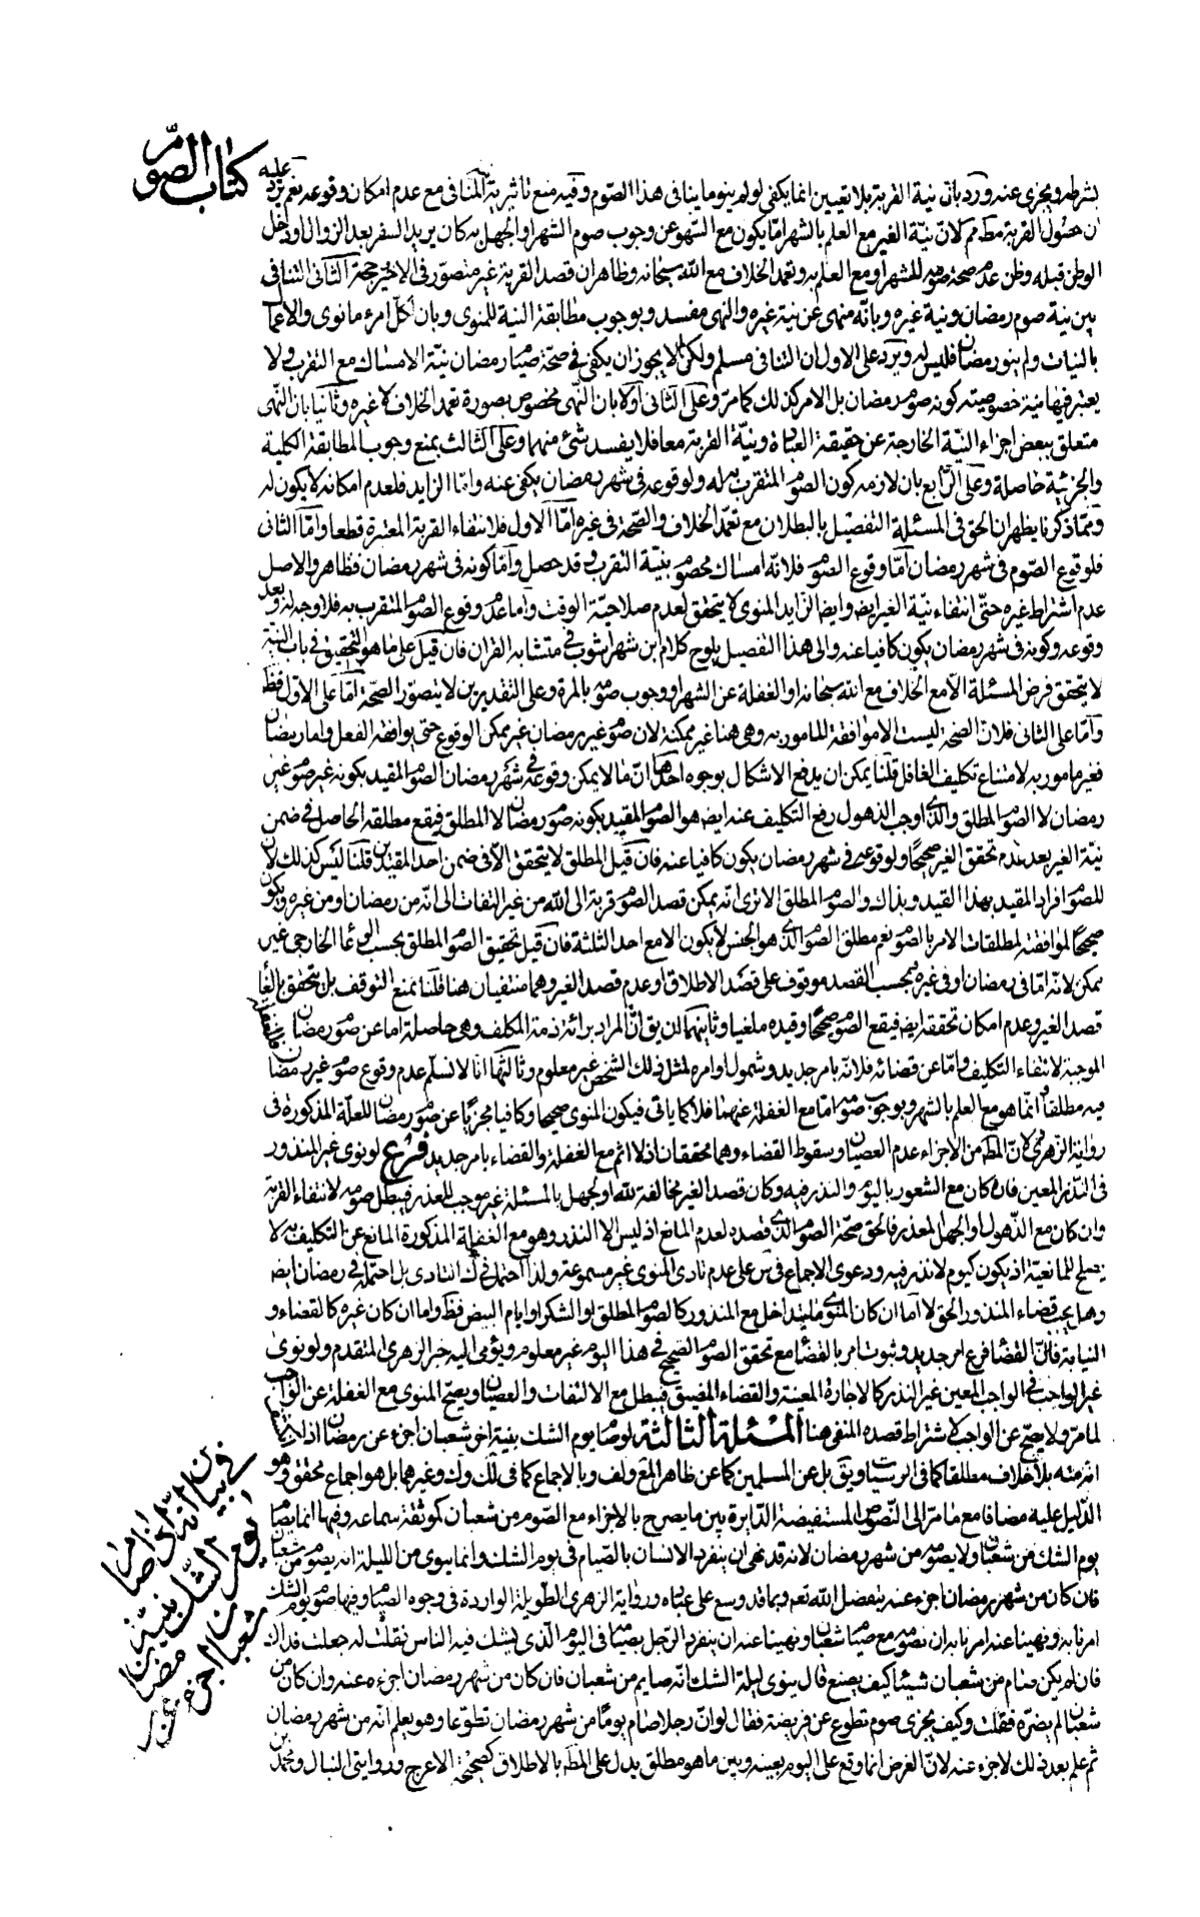 كتاب الصوم
بشرطه ويجزى عنه ورد بان نية القربة بلا تعيين انما يكفى لو لم ينو ما ينافى هذا الصوم وفيه منع تأثير نية المنافى مع عدم امكان وقوعه نعم يرد عليه
ان حصول القربة مط مم لان نية الغير مع العلم بالشهر اما يكون مع السهو عن وجوب صوم الشهر او الجهل به كان يريد السفر بعد الزوال او دخل
الوطن قبله وظن عدم صحة صومه للشهر او مع العلم به وتعمد الخلاف مع الله سبحانه وظاهر ان قصد القربة غير متصور فى الاخير حجة الثانى التنافى
بين نية صوم رمضان ونية غيره وبانه منهى عن نية غيره والنهى مفسد وبوجوب مطابقة النية للمنوى وبان لكل امرء ما نوى والاعمال
بالنيات ولم ينو رمضان فليس له ويرد على الاول ان التنافى مسلم ولكن لم لا يجوز ان يكفى فى صحة صيام رمضان نية الامساك مع التقرب ولا
يعتبر فيها نية خصوصيته كونه صوم رمضان بل الامر كذلك كما مر وعلى الثانى اولا بان النهى مخصوص بصورة تعمد الخلاف لا غيره وثانيا بان النهى
متعلق ببعض اجزاء النية الخارجة عن حقيقة العبادة ونية القربة معا فلا يفسد شئ منهما وعلى الثالث بمنع وجوب المطابقة الكلية
والجزئية حاصلة وعلى الرابع بان لازمه كون الصوم المتقرب به له ولوقوعه فى شهر رمضان يكفى عنه واما الزايد فلعدم امكانه لا يكون له
ومما ذكرنا يظهر ان الحق فى المسئلة التفصيل بالبطلان مع تعمد الخلاف والصحة فى غيره اما الاول فلانتفاء القربة المعتبرة قطعا واما الثانى
فلوقوع الصوم فى شهر رمضان اما وقوع الصوم فلانه امساك مخصوص بنية التقرب وقد حصل واما كونه فى شهر رمضان فظاهر والاصل
عدم اشتراط غيره حتى انتفاء نية الغير ايضا وايضا الزايد المنوى لا يتحقق لعدم صلاحية الوقت واما عدم وقوع الصوم المتقرب به فلا وجه له وبعد
وقوعه وكونه فى شهر رمضان يكون كافيا عنه والى هذا التفصيل يلوح كلام ابن شهراشوب فى متشابه القران فان قيل على ما هو التحقيق فى باب النية
لا يتحقق فرض المسئلة الا مع الخلاف مع الله سبحانه او الغفلة عن الشهر او وجوب صومه بالمرة وعلى التقديرين لا يتصور الصحة اما على الاول فظ
واما على الثانى فلان الصحة ليست الا موافقة المامور به وهى هنا غير ممكنة لان صوم غير رمضان غير ممكن الوقوع حتى يوافقه الفعل واما رمضان
فغير مامور به لامتناع تكليف الغافل قلنا يمكن ان يدفع الاشكال بوجوه احدها ان ما لا يمكن وقوعه فى شهر رمضان الصوم المقيد بكونه غير صوم
رمضان لا الصوم المطلق والذى اوجب الذهول رفع التكليف عنه ايضا هو الصوم المقيد بكونه صوم رمضان لا المطلق فيقع مطلقه الحاصل فى ضمن
نية الغير بعد عدم تحقق الغير صحيحا ولوقوعه فى شهر رمضان يكون كافيا عنه فان قيل المطلق لا يتحقق الا فى ضمن احد المقيدين قلنا ليس كذلك لان
للصوم افراد المقيد بهذا القيد وبذاك والصوم المطلق الا ترى انه يمكن قصد الصوم قربة الى الله من غير التفات الى انه من رمضان او من غيره ويكون
صحيحا لموافقته لمطلقات الامر بالصوم نعم مطلق الصوم الذى هو الجنس لا يكون الا مع احد الثلثة فان قيل تحقيق الصوم المطلق بحسب الوعاء الخارجى غير
ممكن لانه اما فى رمضان او فى غيره وبحسب القصد موقوف على قصد الاطلاق او عدم قصد الغير وهما منتفيان هنا قلنا نمنع التوقف بل يتحقق بالغاء
قصد الغير وعدم امكان تحققه ايضا فيقع الصوم صحيحا وقيده ملغيا وثانيهما ان يق ان المراد برائة ذمة المكلف وهى حاصلة اما عن صوم رمضان
الموجبة لانتفاء التكليف واما عن قضائه فلانه بامر جديد وشمول اوامره لمثل ذلك الشخص غير معلوم وثالثها انا لا نسلم عدم وقوع صوم غير رمضان
فيه مطلقا وانما هو مع العلم بالشهر وبوجوب صومه اما مع الغفلة عنهما فلا كما ياتى فيكون المنوى صحيحا وكافيا مجزيا عن صوم رمضان للعلة المذكورة فى
رواية الزهرى لان المط من الاجزاء عدم العصيان وسقوط القضاء وهما محققان اذ لا اثم مع الغفلة والقضاء بامر جديد فرع لو نوى غير المنذور
فى النذر المعين فان كان مع الشعور باليوم والنذر فيه وكان قصد الغير مخالفة لله او لجهل بالمسئلة غير موجب للعذر فيبطل صومه لانتفاء القربة
وان كان مع الذهول او الجهل المعذر فالحق صحة الصوم الذى قصده لعدم المانع اذ ليس الا النذر وهو مع الغفلة المذكورة المانع عن التكليف به لا
يصلح للمانعية اذ يكون كيوم لا نذر فيه ودعوى الاجماع فى س على عدم تادى المنوى غير مسموعة ولذا احتمل فى ك التادى بل احتمله فى رمضان ايضا
وهل يجب قضاء المنذور الحق لا اما ان كان المنوى مما يتداخل مع المنذور كالصوم المطلق او الشكر او ايام البيض فظ واما ان كان غيره كالقضاء و
النيابة فلان القضاء فرع امر جديد وثبوت امر بالقضاء مع تحقق الصوم الصحيح فى هذا اليوم غير معلوم ويؤمى اليه خبر الزهرى المتقدم ولو نوى
غير الواجب فى الواجب المعين غير النذر كالاجارة المعينة والقضاء المضيق فيبطل مع الالتفات والعصيان ويصح المنوى مع الغفلة عن الواجب
لما مر ولا يصح عن الواجب لاشتراط قصده المنفى هنا المسئلة الثالثة لو صام يوم الشك بنية اخر شعبان اجزء عن رمضان اذا بان
انه منه بلا خلاف مطلقا كما فى الرسيات ويق بل عن المسلمين كما عن ظاهر المع ولف وبالاجماع كما فى لك وك وغيرهما بل هو اجماع محقق وهو
الدليل عليه مضافا مع ما مر الى النصوص المستفيضة الدايرة بين ما يصرح بالاجزاء مع الصوم من شعبان كموثقة سماعه وفيها انما يصام
يوم الشك من شعبان ولا يصومه من شهر رمضان لانه قد نهى ان ينفرد الانسان بالصيام فى يوم الشك وانما ينوى من الليلة انه يصوم من شعبان
فان كان من شهر رمضان اجزء عنه بتفضل الله تعم وبما قد وسع على عباده ورواية الزهرى الطويلة الواردة فى وجوه الصيام وفيها صوم يوم الشك
امرنا به ونهينا عنه امرنا به ان نصومه مع صيام شعبان ونهينا عنه ان ينفرد الرجل بصيامه فى اليوم الذى يشك فيه الناس فقلت له جعلت فداك
فان لم يكن صام من شعبان شيئا كيف يصنع قال ينوى ليلة الشك انه صايم من شعبان فان كان من شهر رمضان اجزءه عنه وان كان من
شعبان لم يضره فقلت وكيف يجزى صوم تطوع عن فريضة فقال لو ان رجلا صام يوما من شهر رمضان تطوعا وهو يعلم انه من شهر رمضان
ثم علم بعد ذلك لاجزء عنه لان الفرض انما وقع على اليوم بعينه وبين ما هو مطلق يدل على المط بالاطلاق كصحيحة الاعرج وروايتى النبال ومحمد بن
فى بيان انه اذا صام
يوم الشك بنية
شعبان اجزء عن
رمضان